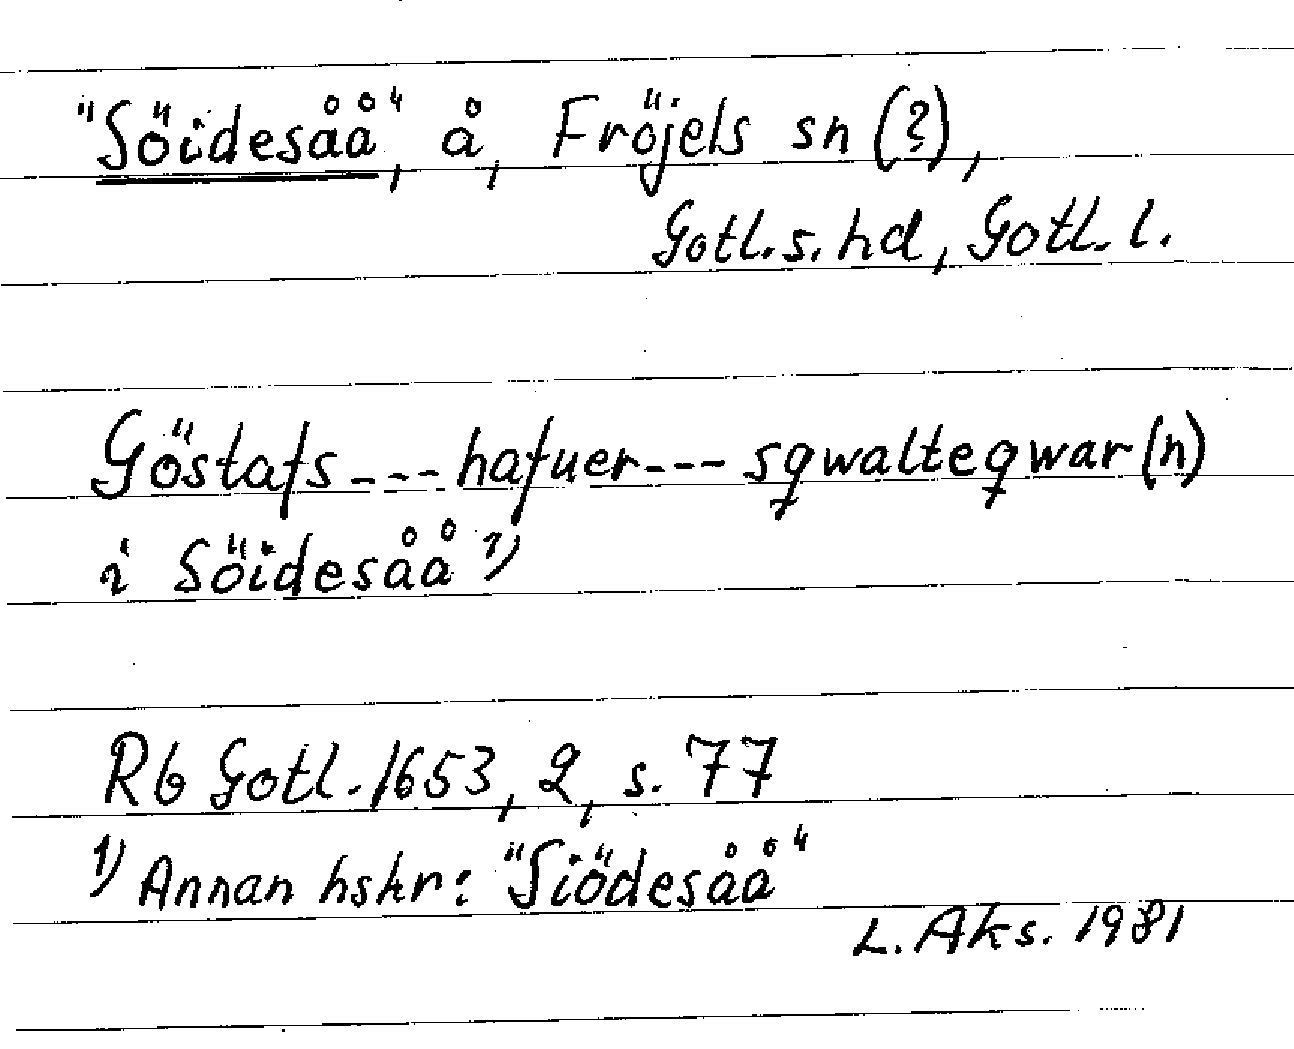 "Söidesåå", å, Fröjels sn (?),
Gotl. s. hd, Gotl. l.
Göstafs --- hafuer --- sqwalteqwar(n)
i Söidesåå 1)
Rb Gotl. 1653, 2, s. 77
1) Annan hskr: "Siödesåå"
L. Aks. 1981